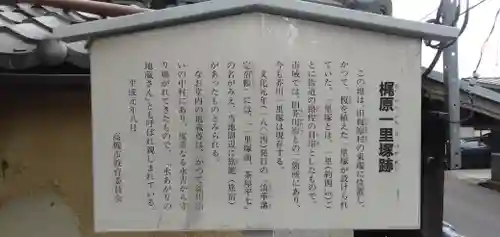 梶原一里塚跡
この地は、旧梶原村の東端に位置し、
かつて、榎を植えた一里塚が設けられ
ていた。一里塚とは、一里(約四㎞)ご
とに街道の路程の目印としたもので、
市域では、旧芥川宿もの二箇所にあり、
今も芥川一里塚は現存する。
文化元年(一八〇四)発行の「浪華講
定宿帳」には、「一里塚前、茶屋平七」
の名がみえ、当地周辺に旅籠(旅宿)
があったものとみられる。
なお堂内の地蔵尊は、かつて
いの中村にあり、度重なる水害から守
り継がれてきたもので、「水あがりの
地蔵さん」とも呼ばれ親しまれている。
平成元年八月
高槻市教育委員会